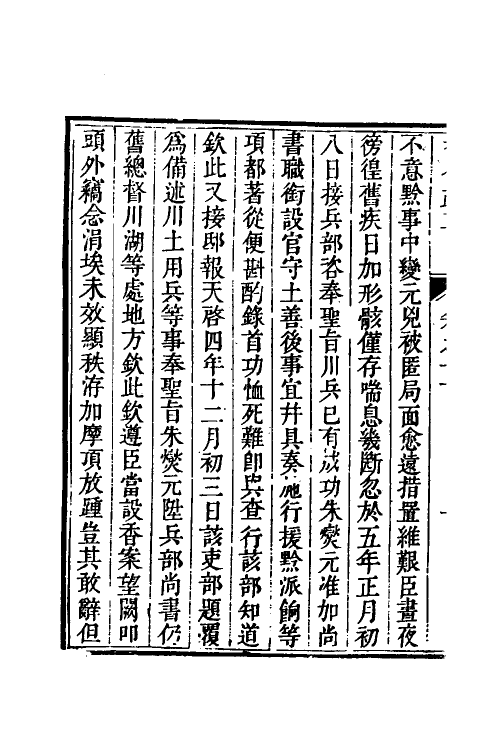 不意黔事中變元兇被匿局面愈遠措置維艱臣晝夜
徬徨舊疾日加形骸僅存喘息幾斷忽於五年正月初
八日接兵部咨奉聖旨川兵已有成功朱燮元准加尚
書職銜設官守土善後事宜幷具奏施行援黔派餉等
項都著從便斟酌錄首功恤死難卽與查行該部知道
欽此又接邸報天啓四年十二月初三日該吏部題覆
爲備述川土用兵等事奉聖旨朱燮元陞兵部尚書仍
舊總督川湖等處地方欽此欽遵臣當設香案望闕叩
頭外竊念涓埃未效顯秩洊加摩頂放踵豈其敢辭但